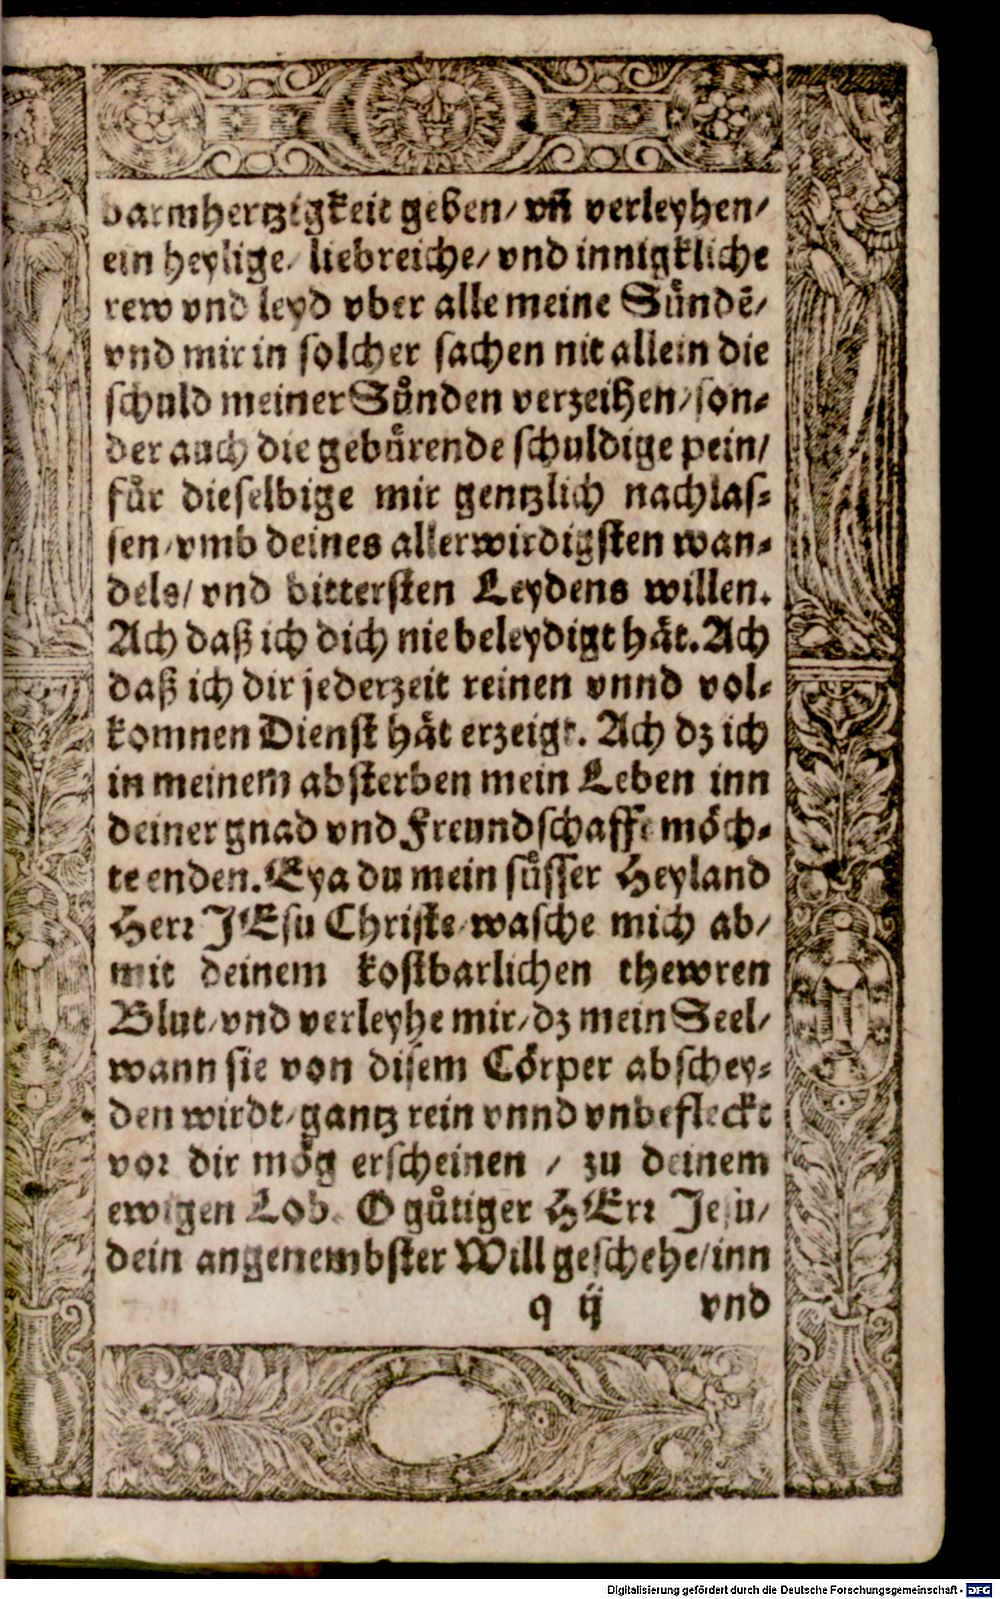 barmhertzigkeit geben/ vñ verleyhen/
ein heylige/ liebreiche/ vnd innigkliche
rew vnd leyd vber alle meine Sůndē/
vnd mir in solcher sachen nit allein die
schuld meiner Sůnden verzeihen/ son-
der auch die gebůrende schuldige pein/
fůr dieselbige mir gentzlich nachlas-
sen/ vmb deines allerwirdigsten wan-
dels/ vnd bittersten Leydens willen.
Ach daß ich dich nie beleydigt hät. Ach
daß ich dir jederzeit reinen vnnd vol-
komnen Dienst hät erzeigt. Ach dz ich
in meinem absterben mein Leben inn
deiner gnad vnd Freundschafft möch-
te enden. Eya du mein sůsser Heyland
Herr JEsu Christe/ wasche mich ab/
mit deinem kostbarlichen thewren
Blut/ vnd verleyhe mir/ dz mein Seel/
wann sie von disem Cörper abschey-
den wirdt/ gantz rein vnnd vnbefleckt
vor dir mög erscheinen / zu deinem
ewigen Lob. O gůtiger HErr Jesu/
dein angenembster Will geschehe/ inn
q ij vnd
Digitalisierung gefördert durch die Deutsche Forschungsgemeinschaft - DFG